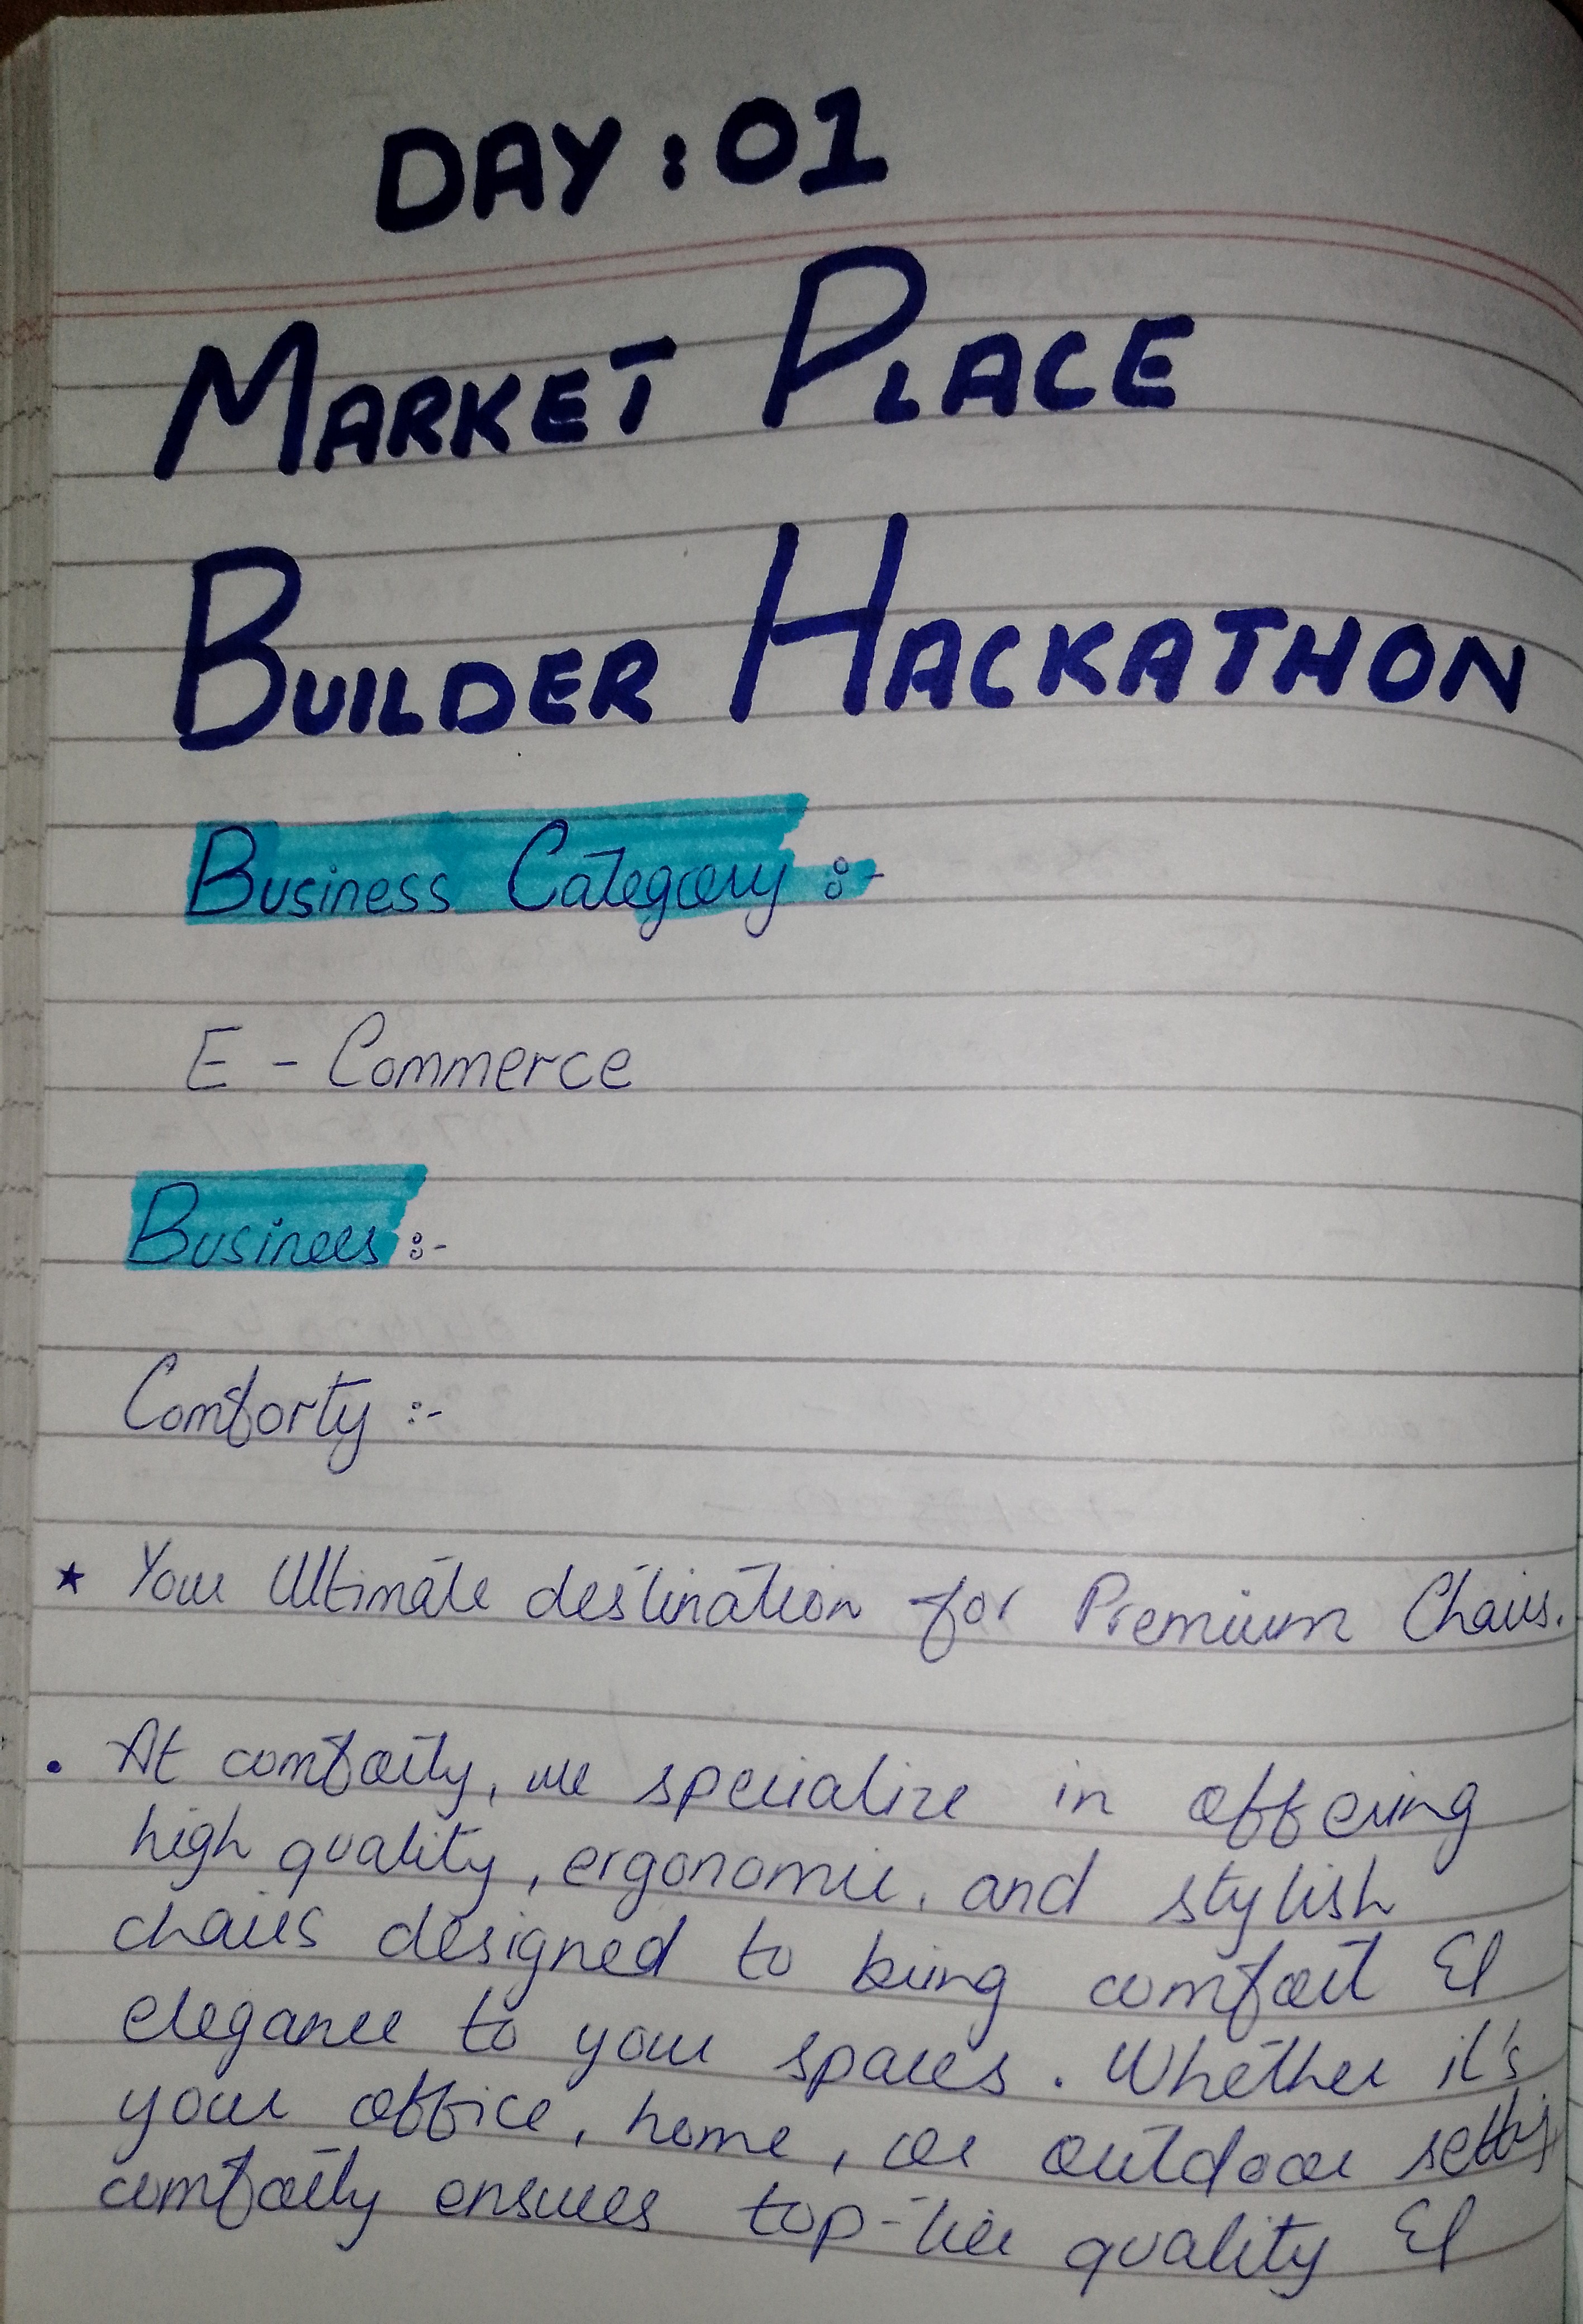 DAY : 01
MARKET PLACE
BUILDER HACKATHON
Business Category :-
E - Commerce
Business :-
Comforty :-
★ Your Ultimate destination for Premium Chairs.
• At comforty, we specialize in offering
high quality, ergonomic, and stylish
chairs designed to bring comfort &
elegance to your spaces. Whether it's
your office, home, or outdoor setting
comforty ensures top-tier quality &